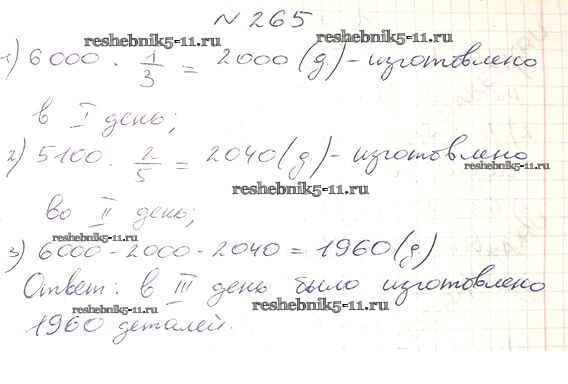 № 265
reshebnik5-11.ru
1) 6000 · 1/3 = 2000 (д) - изготовлено
reshebnik5-11.ru
в I день;
reshebnik5-11.ru
2) 5100 · 2/5 = 2040 (д) - изготовлено
reshebnik5-11.ru
во II день;
reshebnik5-11.ru
3) 6000 - 2000 - 2040 = 1960 (д)
Ответ: в III день было изготовлено
reshebnik5-11.ru
1960 деталей.